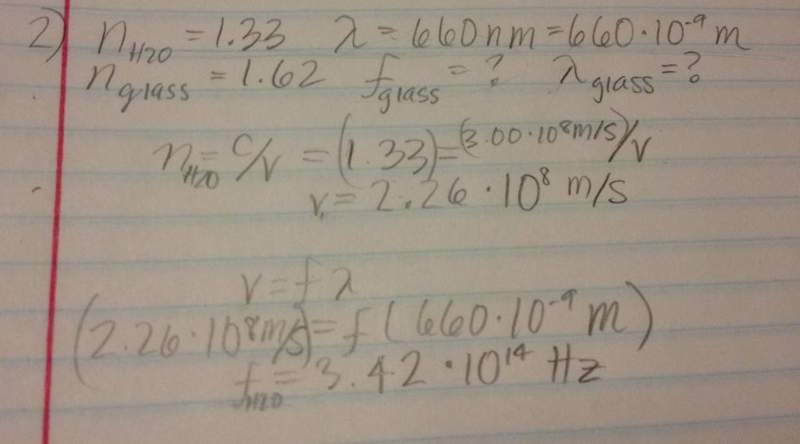 2) n_H2O = 1.33 λ = 660nm = 660·10⁻⁹ m
n_glass = 1.62 f_glass = ? λ_glass = ?
n_H2O = c/v = (1.33) = (3.00·10⁸m/s)/v
v = 2.26·10⁸ m/s
v = fλ
(2.26·10⁸m/s) = f(660·10⁻⁹ m)
f_H2O = 3.42·10¹⁴ Hz